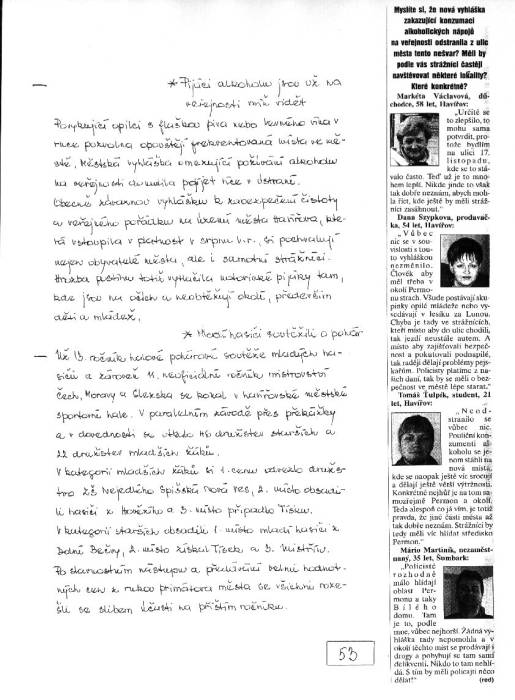 * Pijáci alkoholu jsou už na
veřejnosti míň vidět
Porykující opilci s flaškou piva nebo levného vína v
ruce pozvolna opouštějí frekventovaná místa ve mě-
stě. Městská vyhláška omezující požívání alkoholu
na veřejnosti donutila popíjet více v ústraní.
Obecně závaznou vyhlášku k zabezpečení čistoty
a veřejného pořádku na území města Havířova, kte-
rá vstoupila v platnost v srpnu t.r., si pochvalují
nejen obyvatelé města, ale i samotní strážníci.
Hrozba postihu totiž vytlačila notorické pijáky tam,
kde jsou na očích a neobtěžují okolí, především
děti a mládež.
* Mladí hasiči soutěžili o pohár
Už 13. ročník halové pohárové soutěže mladých ha-
sičů a zároveň 11. neoficiální ročník mistrovství
Čech, Moravy a Slezska se konal v havířovské městské
sportovní hale. V paralelním závodě přes překážky
a v dovednosti se utkalo 46 družstev starších a
22 družstev mladších žáků.
V kategorii mladších žáků si 1. cenu odvezlo družs-
tvo ZŠ Nejedlého Spišská Nová Ves, 2. místo obsadi-
li hasiči z a 3. místo připadlo Tísku.
V kategorii starších obsadili 1. místo mladí hasiči z
Dolní Bečvy, 2. místo získal Tísek a 3. Mistřín.
Po slavnostním nástupu a předávání velmi hodnot-
ných cen z rukou primátora města se všichni roze-
šli se slibem účasti na příštím ročníku.
53
Myslíte si, že nová vyhláška
zakazující konzumaci
alkoholických nápojů
na veřejnosti odstranila z ulic
města tento nešvar? Měli by
podle vás strážníci častěji
navštěvovat některé lokality?
Které konkrétně?
Markéta Václavová, dů-
chodce, 58 let, Havířov:
„Určitě se
to zlepšilo, to
mohu sama
potvrdit, pro-
tože bydlím
na ulici 17.
listopadu,
kde se to stá-
valo často. Teď už je to mno-
hem lepší. Nikde jinde to však
tak dobře neznám, abych moh-
la říct, kde ještě by měli stráž-
níci zasáhnout."
Dana Szypkova, prodavač-
ka, 54 let, Havířov:
„Vůbec
nic se v sou-
vislosti s tou-
to vyhláškou
nezměnilo.
Člověk aby
měl třeba v
okolí Permo-
nu strach. Všude postávají sku-
pinky opilé mládeže nebo vy-
sedávají v lesíku za Lunou.
Chyba je tady ve strážnících,
kteří místo aby do ulic chodili,
tak jezdí neustále autem. A
místo aby zajišťovali bezpeč-
nost a pokutovali podnapilé,
tak raději dělají problémy pejs-
kařům. Policisty platíme z na-
šich daní, tak by se měli o bez-
pečnost ve městě lépe starat."
Tomáš Ťulpík, student, 21
let, Havířov:
„Neod-
stranilo se
vůbec nic.
Pouliční kon-
zumenti al-
koholu se je-
nom stáhli na
nová místa,
kde se naopak ještě víc srocují
a dělají ještě větší výtržnosti.
Konkrétně nejhůř je na tom sa-
mozřejmě Permon a okolí.
Teda alespoň co já vím, je totiž
pravda, že jiné části města až
tak dobře neznám. Strážníci by
tedy měli víc hlídat středisko
Permon."
Mário Martiník, nezaměst-
naný, 35 let, Šumbark:
„Policisté
rozhodně
málo hlídají
oblast Per-
monu a taky
Bílého
domu. Tam
je to, podle
mne, vůbec nejhorší. Žádná vy-
hláška rady nepomohla a v
okolí těchto míst se prodávají i
drogy a pohybují se tam samí
delikventi. Nikdo to tam nehlí-
dá. S tím by měli policajti něco
dělat!" (red)